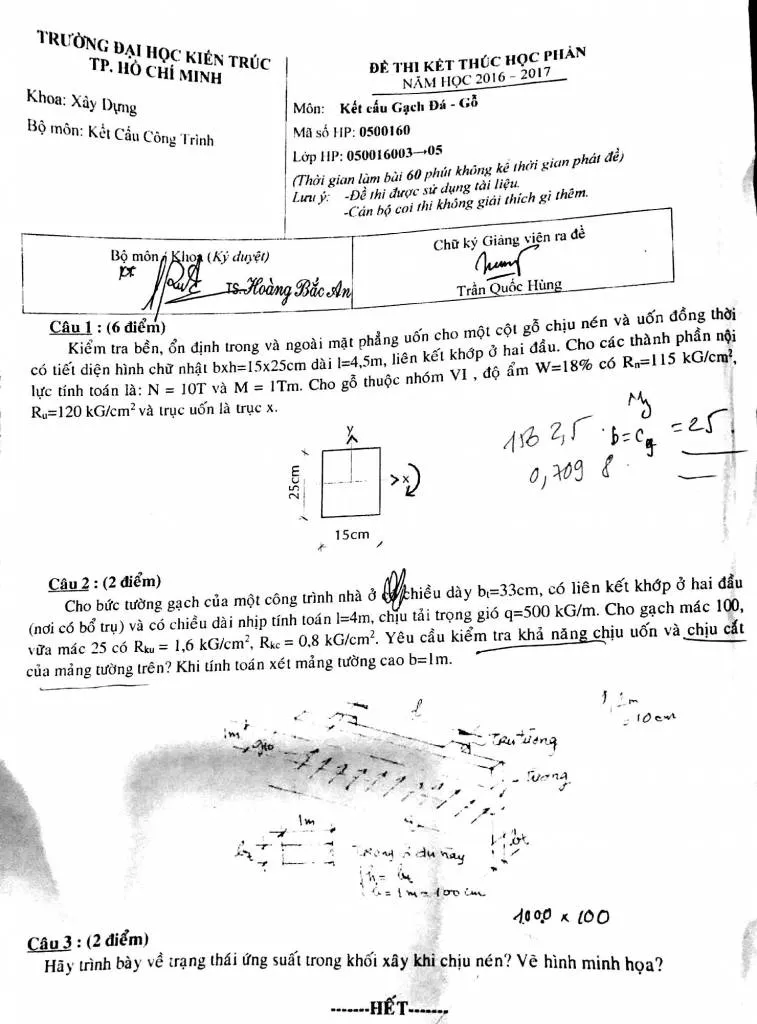 TRƯỜNG ĐẠI HỌC KIẾN TRÚC
TP. HỒ CHÍ MINH
Khoa: Xây Dựng
Bộ môn: Kết Cấu Công Trình
ĐỀ THI KẾT THÚC HỌC PHẦN
NĂM HỌC 2016 - 2017
Môn: Kết cấu Gạch Đá - Gỗ
Mã số HP: 0500160
Lớp HP: 050016003→05
(Thời gian làm bài 60 phút không kể thời gian phát đề)
Lưu ý: -Đề thi được sử dụng tài liệu.
-Cán bộ coi thi không giải thích gì thêm.
Bộ môn / Khoa (Ký duyệt)
TS. Hoàng Bắc An
Chữ ký Giảng viên ra đề
Trần Quốc Hùng
Câu 1 : (6 điểm)
Kiểm tra bền, ổn định trong và ngoài mặt phẳng uốn cho một cột gỗ chịu nén và uốn đồng thời
có tiết diện hình chữ nhật bxh=15x25cm dài l=4,5m, liên kết khớp ở hai đầu. Cho các thành phần nội
lực tính toán là: N = 10T và M = 1Tm. Cho gỗ thuộc nhóm VI , độ ẩm W=18% có Rn=115 kG/cm²,
Ru=120 kG/cm² và trục uốn là trục x.
My
2,5 b=c = 25
0,709 8
y
x
25cm
15cm
Câu 2 : (2 điểm)
Cho bức tường gạch của một công trình nhà ở chiều dày bt=33cm, có liên kết khớp ở hai đầu
(nơi có bổ trụ) và có chiều dài nhịp tính toán l=4m, chịu tải trọng gió q=500 kG/m. Cho gạch mác 100,
vữa mác 25 có Rku = 1,6 kG/cm², Rkc = 0,8 kG/cm². Yêu cầu kiểm tra khả năng chịu uốn và chịu cắt
của mảng tường trên? Khi tính toán xét mảng tường cao b=1m.
l
= 10 cm
1m
gió
trụ tường
Tường
bt
1m
Trong ví dụ này
b = 1m = 100 cm
1000 x 100
Câu 3 : (2 điểm)
Hãy trình bày về trạng thái ứng suất trong khối xây khi chịu nén? Vẽ hình minh họa?
-------HẾT-------